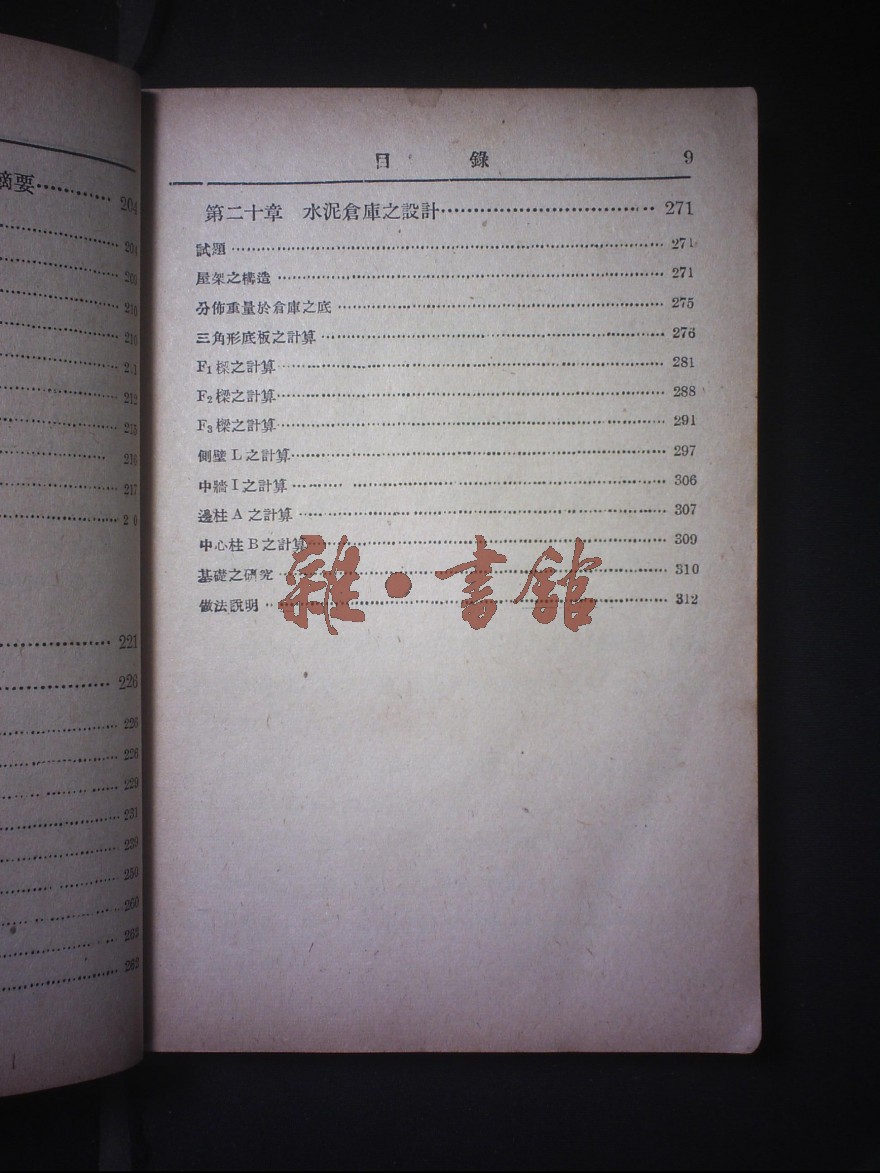 摘要 204
204
209
210
210
211
212
215
216
217
2 0
221
226
226
226
229
231
239
250
260
262
262
1
目 錄 9
第二十章 水泥倉庫之設計 271
試題 271
屋架之構造 271
分佈重量於倉庫之底 275
三角形底板之計算 276
F1 樑之計算 281
F2 樑之計算 288
F3 樑之計算 291
側壁 L 之計算 297
中牆 I 之計算 306
邊柱 A 之計算 307
中心柱 B 之計算 309
基礎之研究 310
做法說明 312
雜·書館